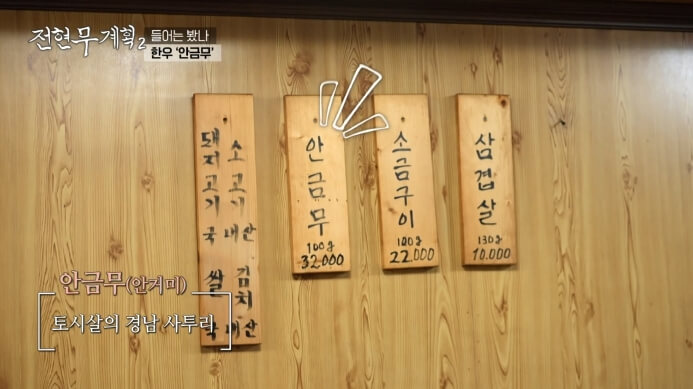 전현무계획2
들어는 봤나
한우 '안금무'
돼지고기 국내산
소고기
쌀 국내산
김치
안금무
100g
32.000
소금구이
100g
22.000
삼겹살
130g
10.000
안금무(안거미)
토시살의 경남 사투리